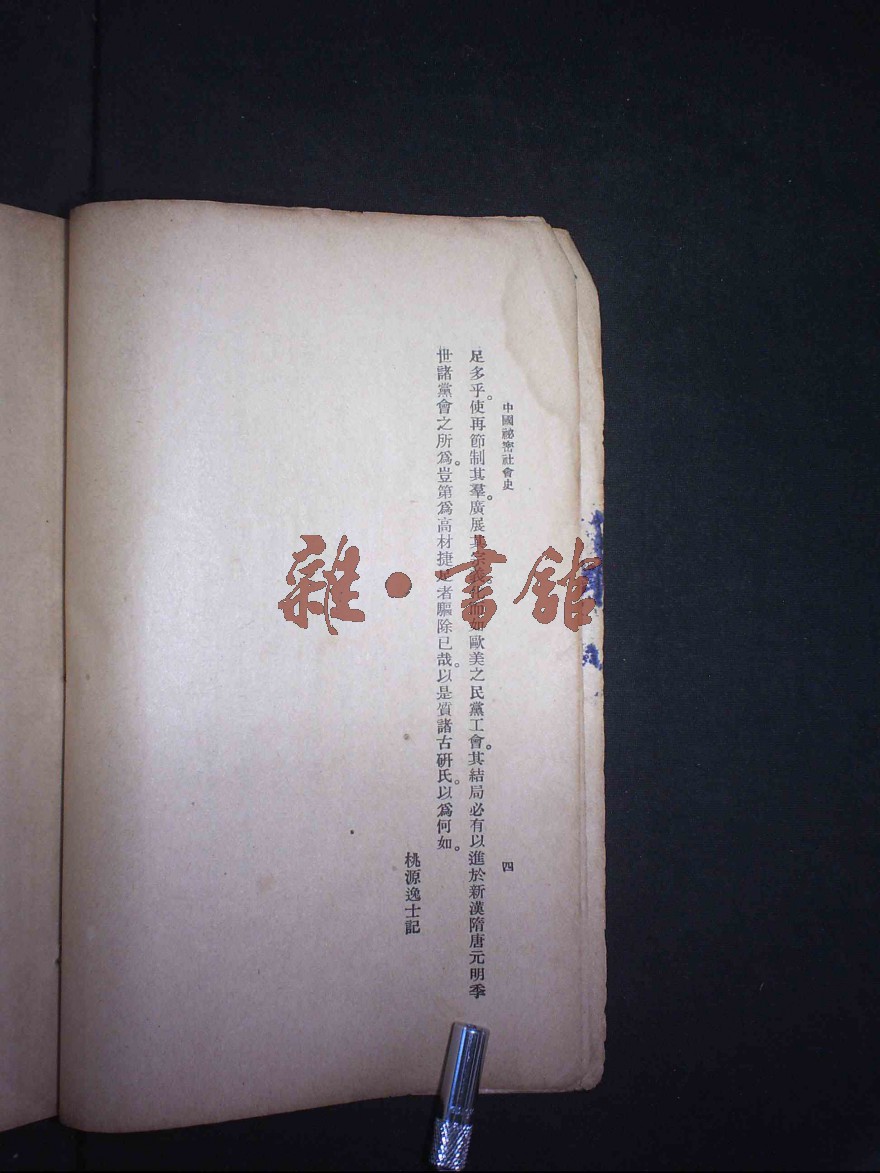 中國祕密社會史
四
足多乎。使再節制其羣。廣展其宗 如歐美之民黨工會。其結局必有以進於新漢隋唐元明季
世諸黨會之所爲。豈第爲高材捷足者驅除已哉。以是質諸古研氏。以爲何如。
桃源逸士記
雜·書館